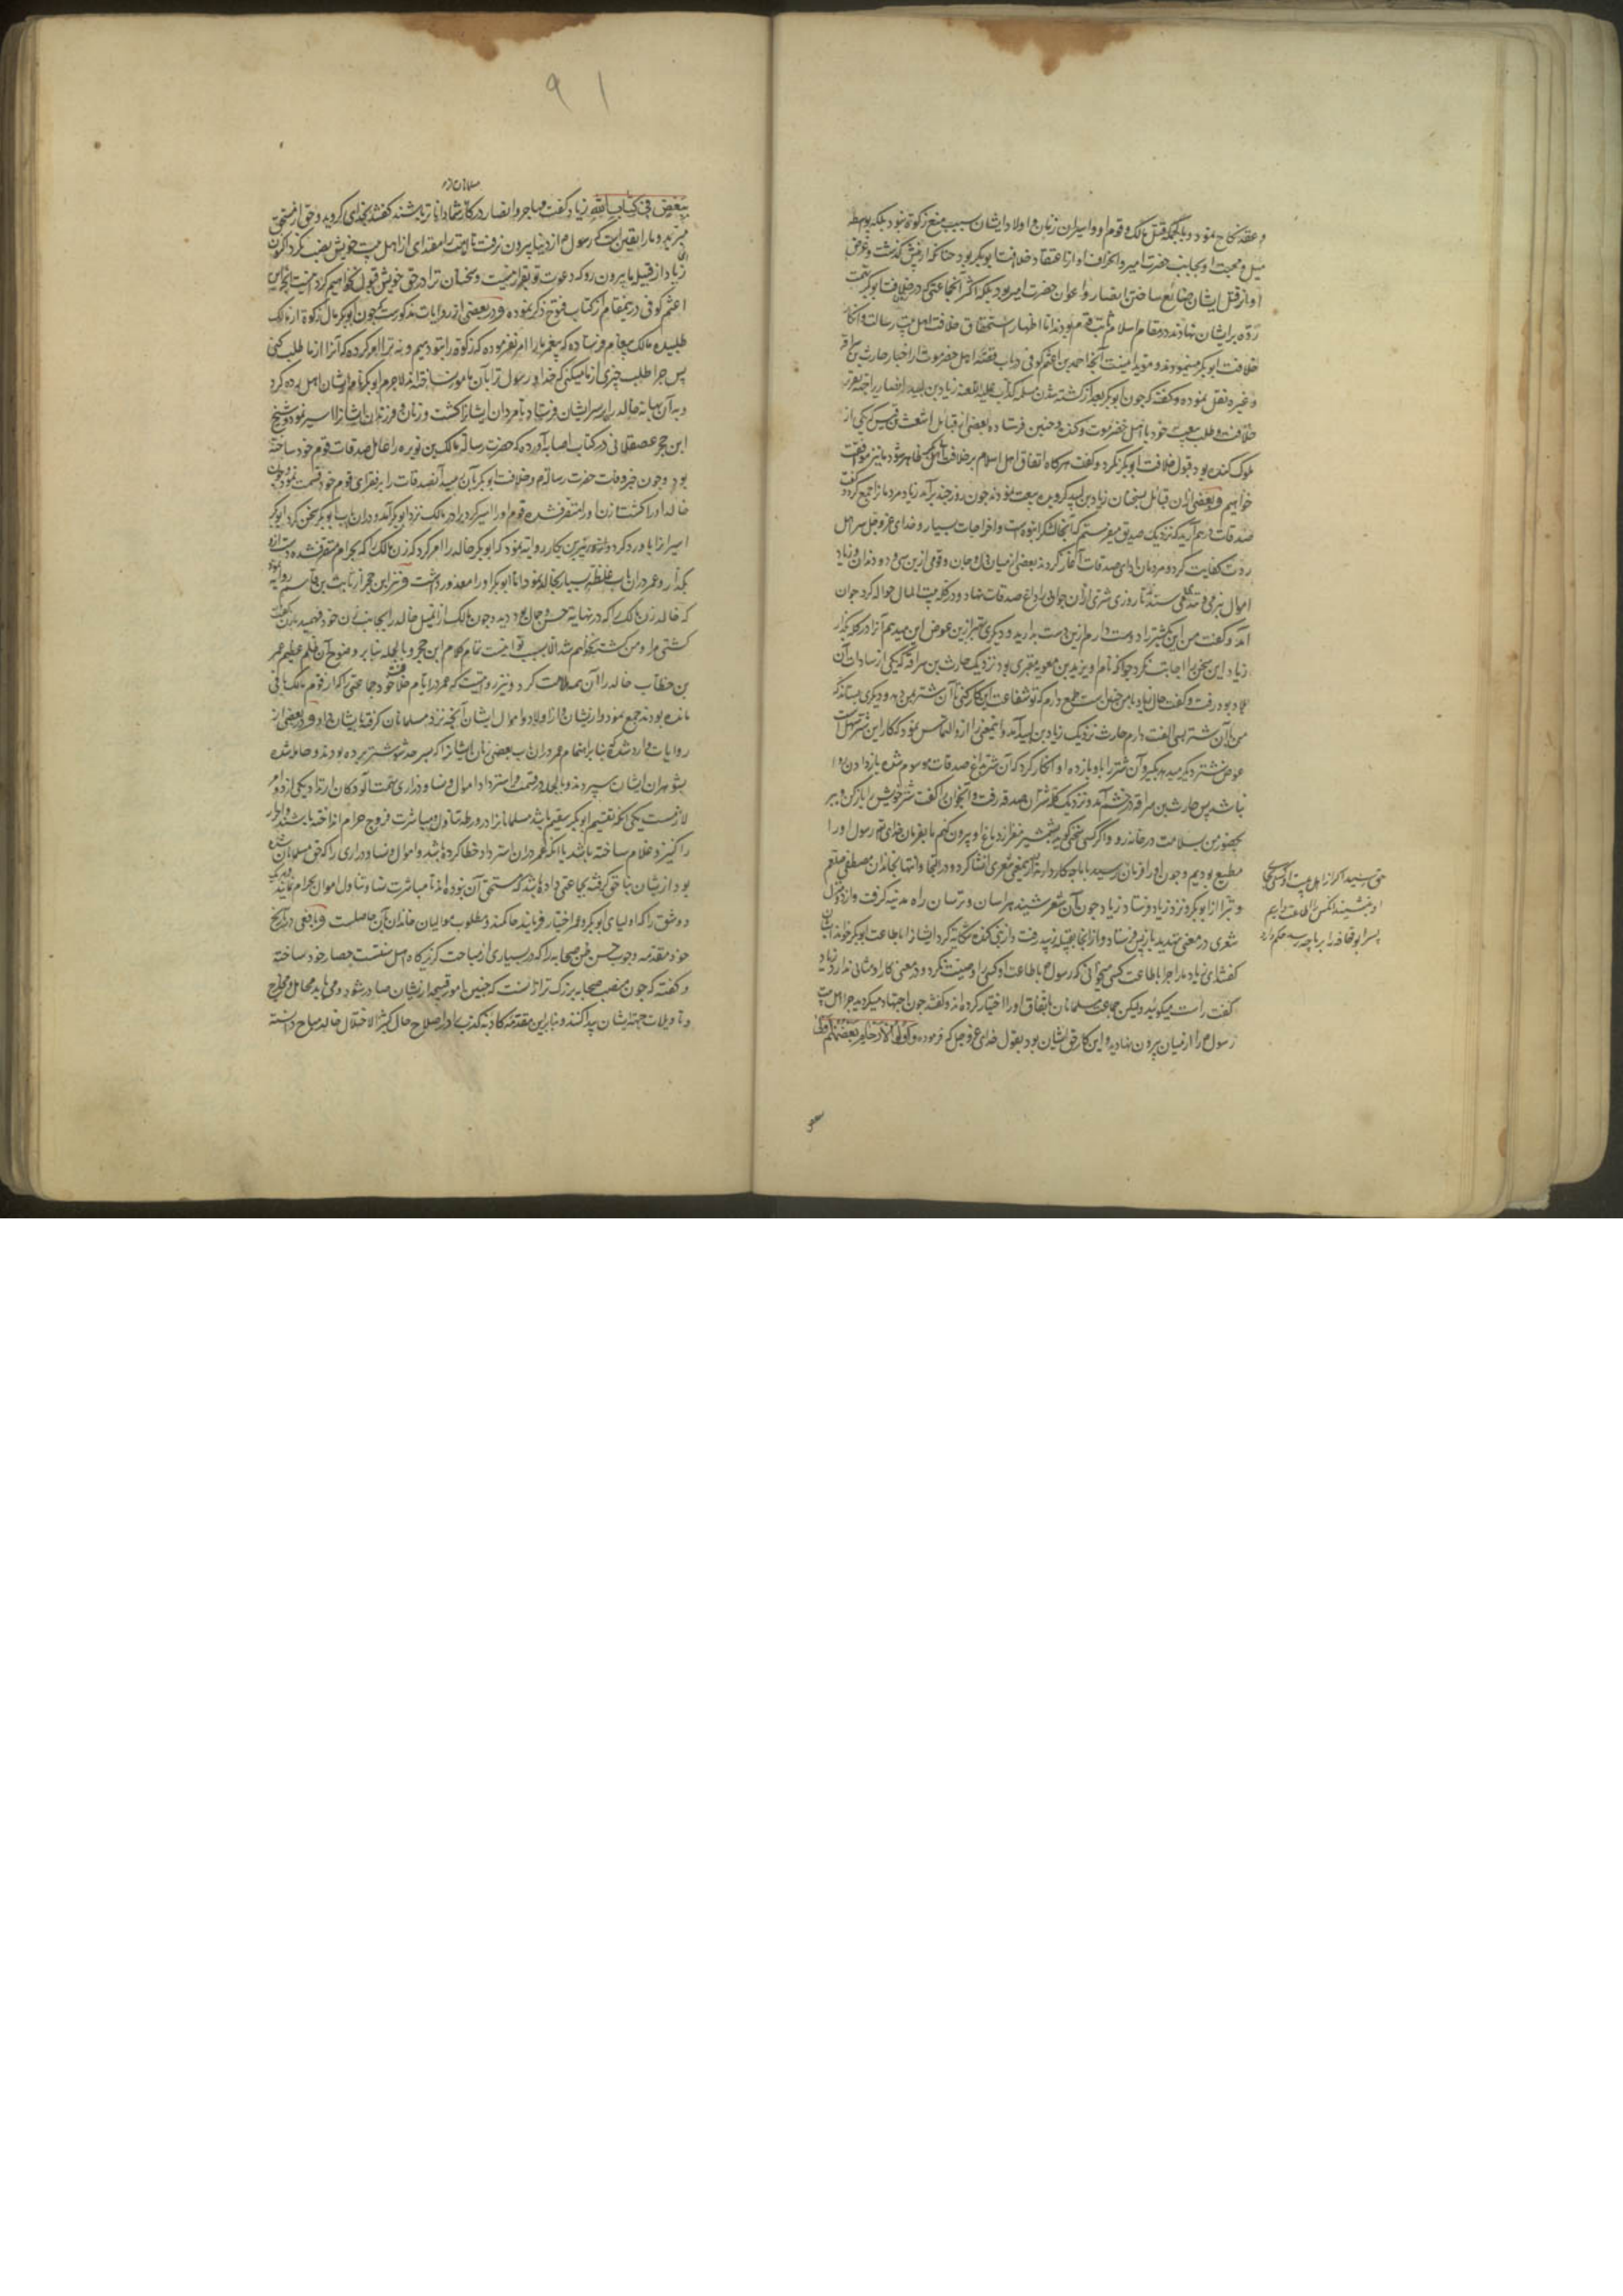 و عقد نکاح نمود و بالجمله قتل مالک و قوم او و اسیران زنان و اولاد ایشان بسبب منع زکوة نبود بلکه بواسطه
میل و محبت او بجانب حضرت امیر و انحراف او از اعتقاد خلافت ابوبکر بود چنانکه از پیش گذشت و غرض
او از قتل ایشان ضائع ساختن انصار و اعوان حضرت امیر بود بلکه اکثر آنجماعتی که در خلافت ابوبکر تهمت
ردّه بر ایشان نهادند در مقام اسلام ثابت قدم بودند اما اظهار استحقاق خلافت اهل بیت رسالت و انکار
خلافت ابوبکر مینمودند و مؤید اینست آنچه احمد بن اعثم کوفی در باب قصّه اهل حضرموت از اخبار حارث بن سراقه
و غیره نقل نموده و گفته که چون ابوبکر بعد از کشته شدن مسیلمه کذاب علیه اللعنه زیاد بن لبید انصاری را جهة
خلافت و طلب بیعت خود با اهل حضرموت و کنده فرستاده بعضی از قبایل اشعث بن قیس که یکی از
ملوک کنده بود قبول خلافت ابوبکر نکرد و گفت هرگاه اتفاق اهل اسلام بر خلافت ظاهر شود ما نیز موافقت
خواهیم و بعضی از آن قبائل بسخنان زیاد بن لبید گرویده بیعت نمودند چون روز چند برآمد زیاد مردمانرا جمع کرد و گفت
صدقات فراهم آرید که نزدیک صدیق میفرستم که آنجا لشکر انبوه است و اخراجات بسیار و خدای عز و جل سر اهل
ردت کفایت کرد و مردمان ادای صدقات آغاز کردند بعضی از میان دل و جان و قومی از بن سی و دو دندان و زیاد
اموال بنرمی و تندی می ستد تا روزی شتری از آن جوانی را داغ صدقات نهاد و در گله بیت المال حواله کرد جوان
آمد و گفت من این شتر را دوست دارم ازین دست بدارید و دیگری بهتر ازین عوض این میدهم آنرا در گله بگذار
زیاد این سخن را اجابت نکرد جوانکه نام او یزید بن معویه بود نزدیک حارث بن سراقه که یکی از سادات آن
بود رفت و گفت حال زیاد با من چنین است طمع دارم که تو شفاعت این کار کنی تا آن شتر بمن دهد و دیگری بستاند که
من بآن شتر بسی الفت دارم حارث نزدیک زیاد بن لبید آمد و اینمعنی را از و التماس نمود که کار این شتر سهل است
عوض شتر دیگر میدهد بگیر و آن شتر را باو بازده او انکار کرد که آن شتر بداغ صدقات موسوم شده باز دادن روا
نباشد پس حارث بن سراقه در خشم آمد و نزدیک گله شتران صدقه رفت و آنجوانرا گفت شتر خویش را باز کن و ببر
بحضور من سلامت در خانه رو و اگر کسی سخنی گوید بشمشیر مغز از دماغ او بیرون کنم ما بفرمان خدای تع رسول او را
مطیع بودیم و چون او را فرمان رسید ما را باچه کار دارد شعری انشا کرد و در التجا و انتها بخاندان مصطفی صلعم
و تبرا از ابوبکر و نزد زیاد فرستاد زیاد چون آن شعر شنید هراسان و ترسان راه مدینه گرفت و از دو منزل
شعری در معنی تهدید باز پس فرستاد و از آنجا بقبیله زبید رفت و از بنی کنده شکایت کرد ایشانرا با طاعت ابوبکر خواند
گفتند ای زیاد ما را چرا با طاعت کسی میخوانی که رسول ص با طاعت او کسی را وصیت نکرد و در معنی کار او مثالی ندارد زیاد
گفت راست میگوئید ولیکن جماعت مسلمانان باتفاق او را اختیار کرده اند گفتند چون اجتهاد میکردید چرا اهل بیت
رسول ص را از میان بیرون نهادید و این کار حق ایشان بود بقول خدای عز و جل که فرموده وَاولوا الارحام بعضهم اولی
بعض
پسر ابو قحافه را بر ما چه رسد حکم دارد
مسلمانان از
ببعض فی کتاب الله زیاد گفت مهاجر و انصار در کار شما داناتر باشند گفتند بخدای که دروغ و حق از مستحق
میبرند و ما را یقین است که رسول ص از دنیا بیرون نرفت تا امت را مقتدای از اهل بیت خویش نصب نکرد اکنون
زیاد از قبیل ما بیرون رو که دعوت تو بقرار نیست و سخنان ترا در حق خویش قبول نخواهیم کرد اینست آنچه ابن
اعثم کوفی در نمقام از کتاب فتوح ذکر نموده و در بعضی از روایات مذکورست که چون ابوبکر مال زکوة از مالک
طلبیده مالک پیغام فرستاده که پیغمبر ما را امر نفرموده که زکوة را بتو دهیم و نه ترا امر کرده که آنرا از ما طلب کنی
پس چرا طلب چیزی از ما میکنی که خدا و رسول ترا بآن مامور نساخته اند لاجرم ابوبکر نام ایشان اهل رده کرد
و به آن بهانه خالد را بر سر ایشان فرستاد تا مردان ایشانرا کشت و زنان و فرزندان ایشانرا اسیر نمود و شیخ
ابن حجر عسقلانی در کتاب اصابه آورده که حضرت رسالة مالک بن نویره را عامل صدقات قوم خود ساخته
بود و چون خبر وفات حضرت رسالة ص و خلافت ابوبکر بآن رسید آنصدقات را بر فقرای قوم خود قسمت نمود و چون
خالد او را کشت زن او را متصرف شده قوم او را اسیر کرد برادر مالک نزد ابوبکر آمد و در آن باب با ابوبکر سخن کرد ابوبکر
اسیرانرا باو رد کرد و زبیر بن بکار روایة نموده که ابوبکر خالد را امر کرد که زن مالک که بحرام متصرف شده دست ازو
بگذارد و عمر در آن باب غلظة بسیار بخالد نمود اما ابوبکر او را معذور داشت و نیز ابن حجر از ثابت بن قاسم روایة نموده
که خالد زن مالک را که در نهایة حسن و جمال بود دید و چون مالک از آن میل خالد را بجانب زن خود فهمید بزن گفت
کشتی مرا و من کشته خواهم شد الا بسبب تو اینست تمام کلام ابن حجر و بالجمله بنابر وضوح آن ظلم عظیم عمر
بن خطاب خالد را بآن ملامت کرد و نیز مرویست که عمر در ایام خلافت خود جماعتی را که از قوم مالک باقی
مانده بودند جمع نمود و از ایشان و از اولاد و اموال ایشان آنچه نزد مسلمانان گرفته بایشان داد و در بعضی از
روایات وارد شده که بنابر اهتمام عمر در آن باب بعضی زنان ایشانرا که بسر حد شوشتر برده بودند و حامله شده
بشوهران ایشان سپردند و بالجمله در قسمت و استرداد اموال و نساء و ذراری بتهمت آلودکان ارتداد یکی از دو امر
لازمست یکی آنکه تقسیم ابوبکر سقیم باشد مسلمانانرا در ورطه تناول و مباشرت فروج حرام انداخته باشند و احرار
را کنیز و غلام ساخته باشد یا آنکه عمر در آن استرداد خطا کرده باشد و اموال و نساء و ذراری را که حق مسلمانان شده
بود از ایشان بناحق گرفته بجماعتی داده باشد که مستحق آن نبوده اند تا مباشرت نساء و تناول اموال بحرام نمایند
دو شق را که اولیای ابوبکر و عمر اختیار فرمایند حاکمند و مطلوب موالیان خاندان بآن حاصلست و یافعی در تاریخ
خود مقدمه وجوب حسن ظن بصحابه را که در بسیاری از مباحث گریزگاه اهل سنتست حصار خود ساخته
و گفته که چون منصب صحابه بزرگ تر از آنست که چنین امور قبیحه از ایشان صادر شود و می باید محامل و مخارج
و تاویلات جهة ایشان پیدا کنند و بنابر این مقدمه کاذبه که در اصلاح حال کثیر الاختلال خالد مباح دانسته